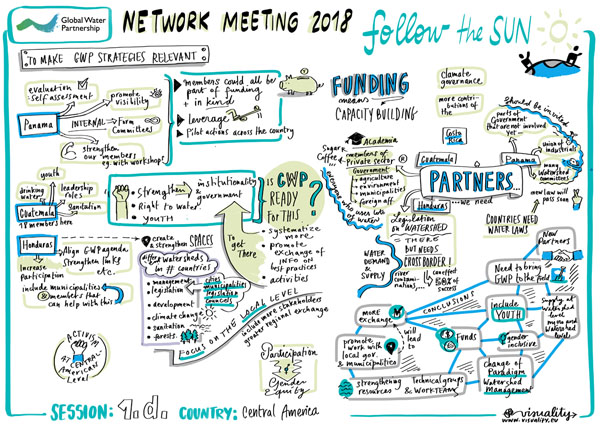 Global Water
Partnership
NETWORK MEETING 2018
follow the SUN
TO MAKE GWP STRATEGIES RELEVANT
evaluation
+ self assessment
promote
visibility
Panama
INTERNAL
Form
Committees
strengthen
our members
eg. with workshop!
members could all be
part of funding
+ in kind
leverage
Pilot actions across the country
FUNDING
means
CAPACITY BUILDING
climate
governance
more contri-
butions of the
Costa
Rica
should be invited
parts of
Government
that are not involved
yet
Union of industrials
many
Watershed
committees
new law will
pass soon
Guatemala
Panama
Honduras
PARTNERS...
...we need
Academia
Sugar
Coffee
members of
Private sector
Government
+ agriculture
+ environment
+ municipalities
+ foreign aff.
uses lots
water
COUNTRIES NEED
WATER LAWS
youth
drinking
water
leadership
roles
sanitation
Guatemala
18 members here
Honduras
Align GWP agenda,
strengthen links
etc.
Increase
participation
include municipalities
members that
can help with this!
strengthen
institutionality
+ government
Right to water
YOUTH
IS GWP
READY
FOR THIS
?
systematize
more
promote
exchange of
info of
best practices
+ activities
To
get
There
create
& strengthen SPACES
of watersheds
in # countries
management
legislation
development
climate change
sanitation
forests
cities
municipalities
legislation
councils
FOCUS ON THE LOCAL LEVEL
include more stakeholders
greater regional exchange
ACTIVISM
AT CENTRAL-
AMERICAN
Level
Participation
&
Gender
Equity
legislation
on WATERSHED
IS THERE
BUT NEEDS
CROSS BORDER!
WATER
DEMAND
& SUPPLY
river
contami-
nations,...
CONCLUSIONS
New
Partners
Need to bring
GWP to the field
more
exchange
include
YOUTH
Supply at
watershed
level
will
lead to
Funds
gender
inclusive
promote
work with
local gov.
& municipalities
strengthening
resources
Technical groups
& WORKTEAM
Change of
Paradigm
Watershed
Management
SESSION: 1.d. COUNTRY: Central America
visuality
www.visuality.eu